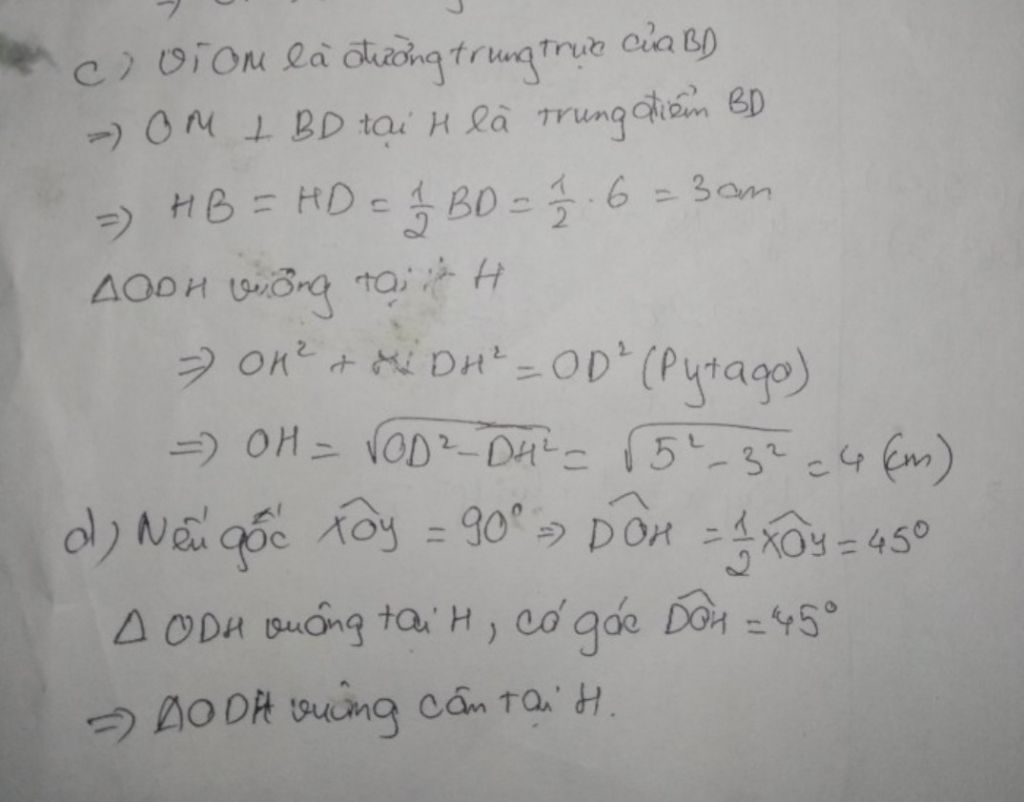 c) Vì OM là đường trung trực của BD
=> OM ⊥ BD tại H là trung điểm BD
=> HB = HD = 1/2 BD = 1/2 . 6 = 3 cm
ΔODH vuông tại H
=> OH² + DH² = OD² (Pytago)
=> OH = √(OD² - DH²) = √(5² - 3²) = 4 (cm)
d) Nếu góc xÔy = 90° => DÔH = 1/2 xÔy = 45°
Δ ODH vuông tại H, có góc DÔH = 45°
=> ΔODH vuông cân tại H.